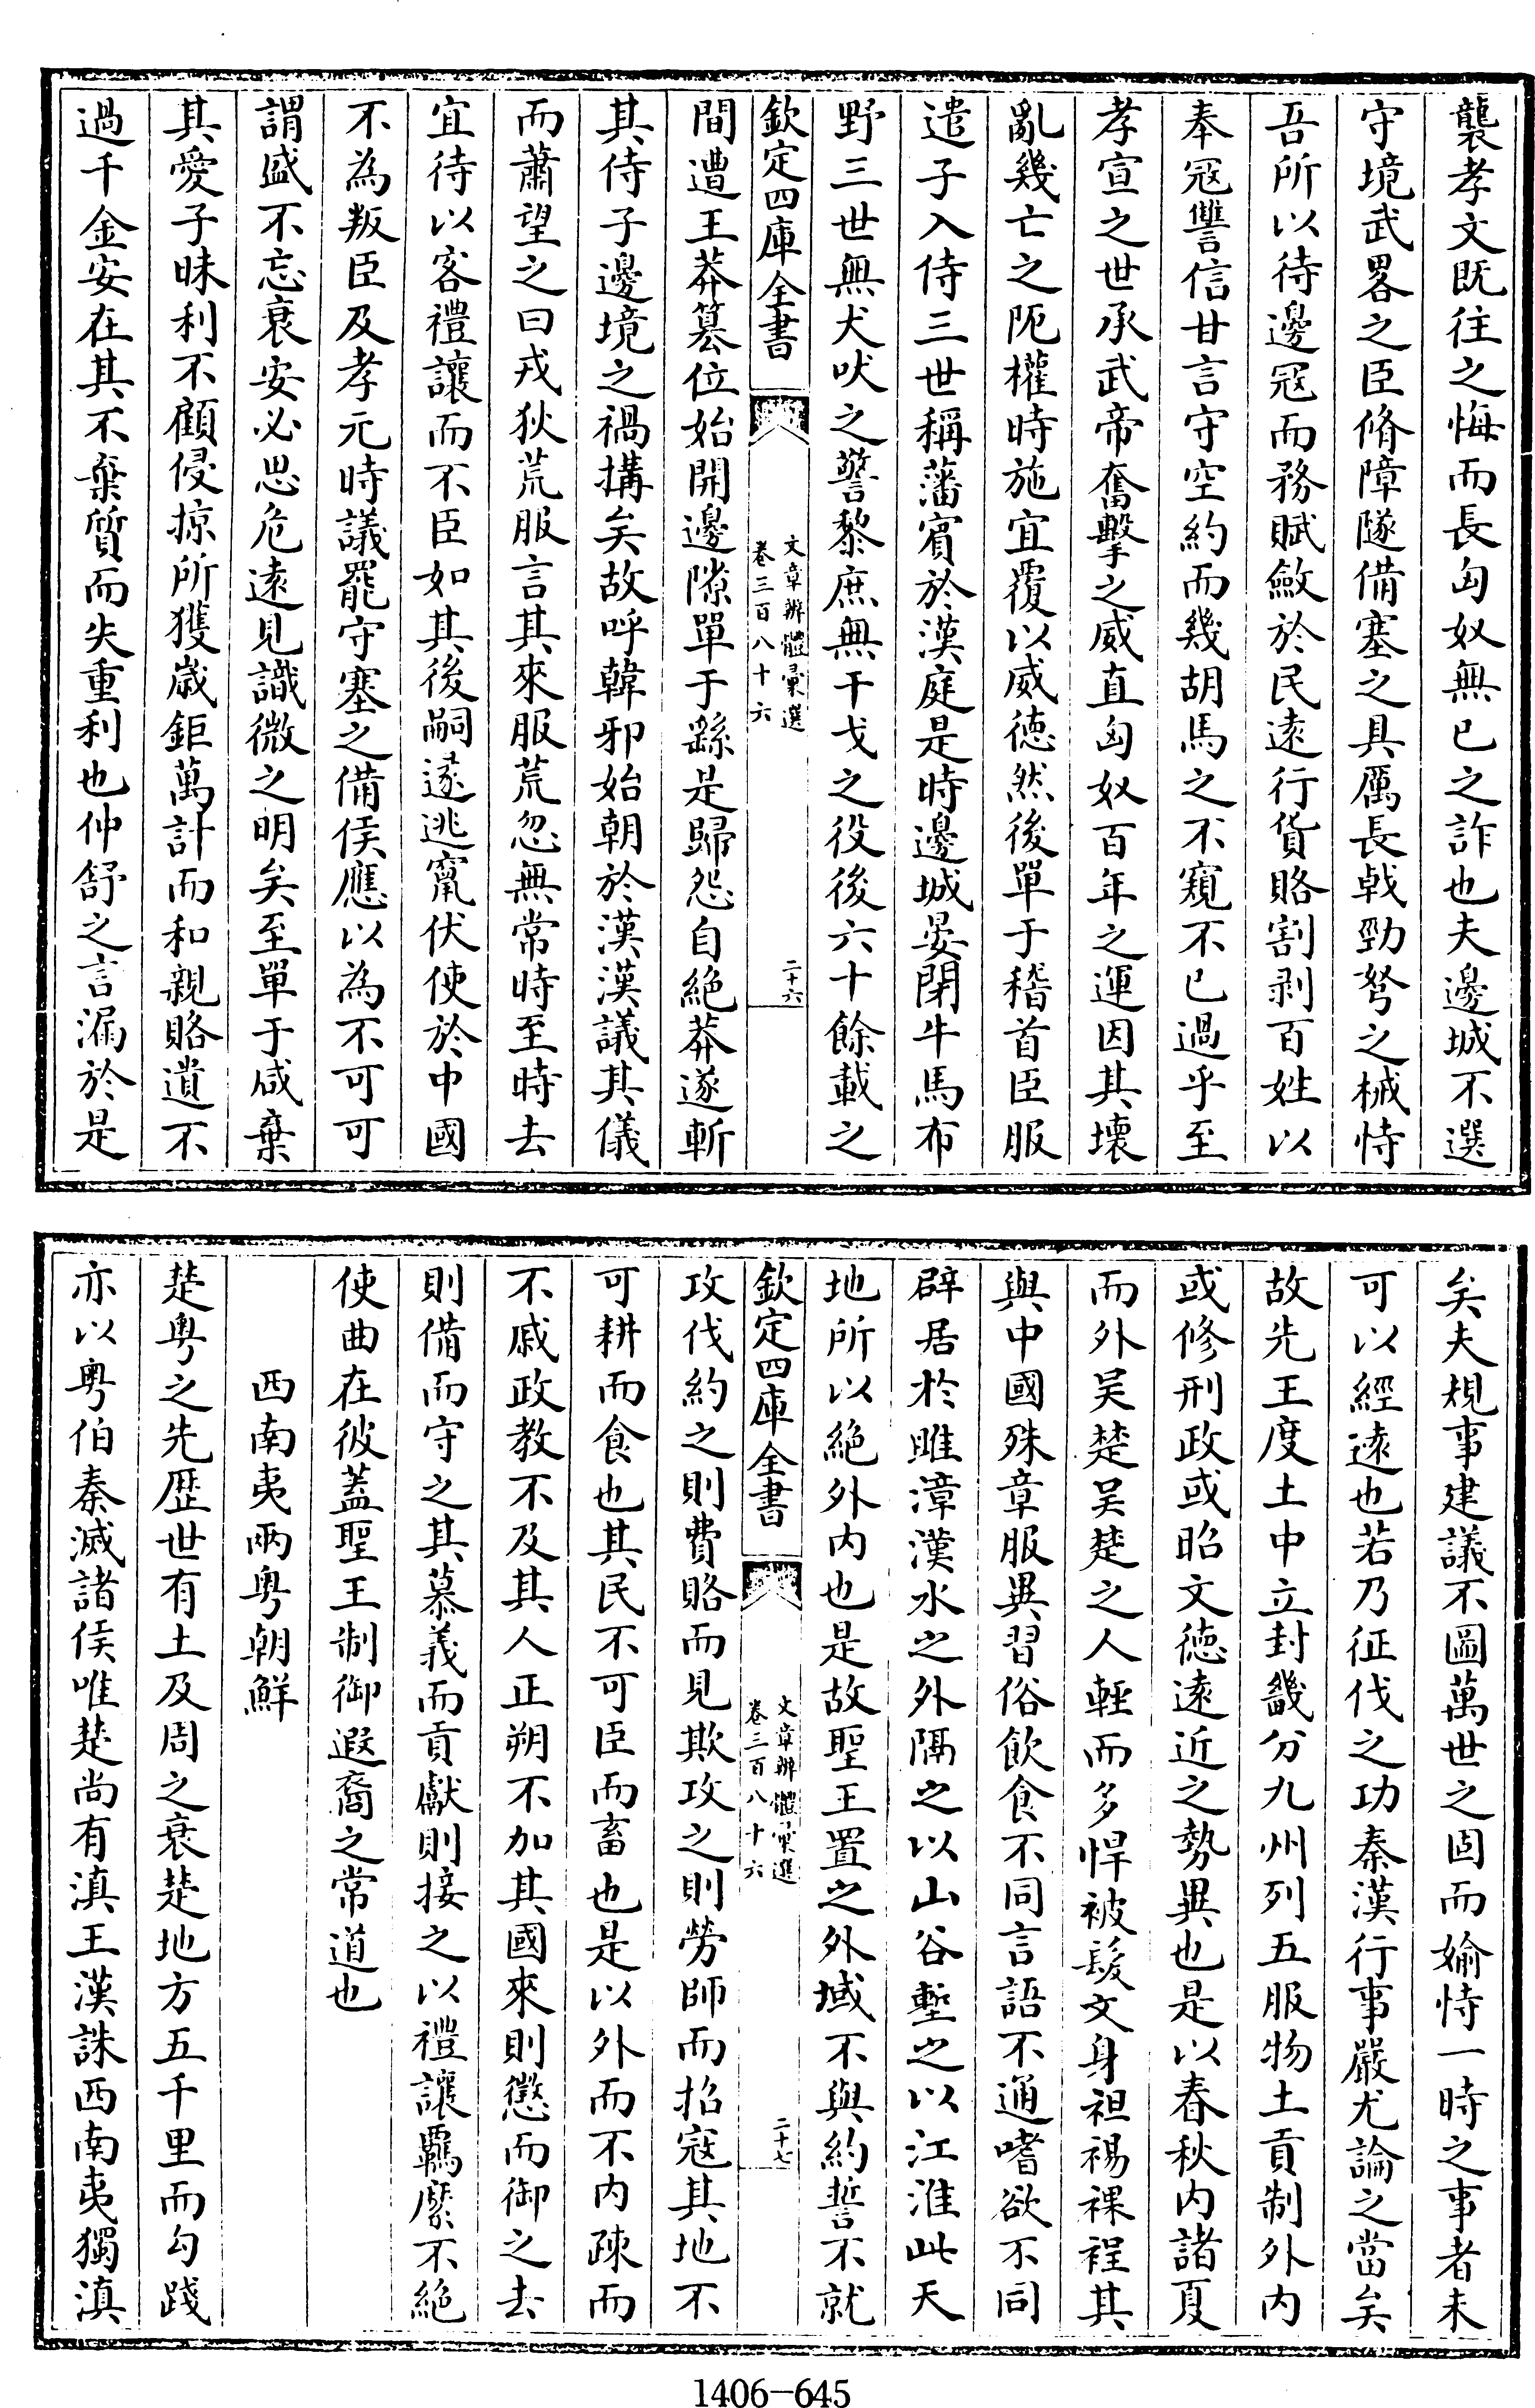 襲孝文既往之悔而長匈奴無已之詐也夫邊城不選
守境武畧之臣脩障隧備塞之具厲長戟勁弩之械恃
吾所以待邊冦而務賦斂於民遠行貨賂割剥百姓以
奉冦讐信甘言守空約而幾胡馬之不窺不已過乎至
孝宣之世承武帝奮擊之威直匈奴百年之運因其壞
亂幾亡之阨權時施宜覆以威德然後單于稽首臣服
遣子入侍三世稱藩賓於漢庭是時邊城晏閉牛馬布
野三世無犬吠之警黎庶無干戈之役後六十餘載之
欽定四庫全書
文章辨體彙選
卷三百八十六
二十六
間遭王莽篡位始開邊隙單于繇是歸怨自絶莽遂斬
其侍子邊境之禍搆矣故呼韓邪始朝於漢漢議其儀
而蕭望之曰戎狄荒服言其來服荒忽無常時至時去
宜待以客禮讓而不臣如其後嗣遂逃竄伏使於中國
不為叛臣及孝元時議罷守塞之備侯應以為不可可
謂盛不忘衰安必思危遠見識微之明矣至單于咸棄
其愛子昧利不顧侵掠所獲歲鉅萬計而和親賂遺不
過千金安在其不棄質而失重利也仲舒之言漏於是
矣夫規事建議不圖萬世之固而媮恃一時之事者未
可以經遠也若乃征伐之功秦漢行事嚴尤論之當矣
故先王度土中立封畿分九州列五服物土貢制外内
或修刑政或昭文德遠近之勢異也是以春秋内諸夏
而外吴楚吴楚之人輕而多悍被髮文身袒裼裸裎其
與中國殊章服異習俗飲食不同言語不通嗜欲不同
辟居於雎漳漢水之外隔之以山谷塹之以江淮此天
地所以絶外内也是故聖王置之外域不與約誓不就
欽定四庫全書
文章辨體彙選
卷三百八十六
二十七
攻伐約之則費賂而見欺攻之則勞師而招寇其地不
可耕而食也其民不可臣而畜也是以外而不内疎而
不戚政教不及其人正朔不加其國來則懲而御之去
則備而守之其慕義而貢獻則接之以禮讓羈縻不絶
使曲在彼蓋聖王制御遐裔之常道也
西南夷兩粤朝鮮
楚粤之先歴世有土及周之衰楚地方五千里而勾踐
亦以粤伯秦滅諸侯唯楚尚有滇王漢誅西南夷獨滇
1406-645